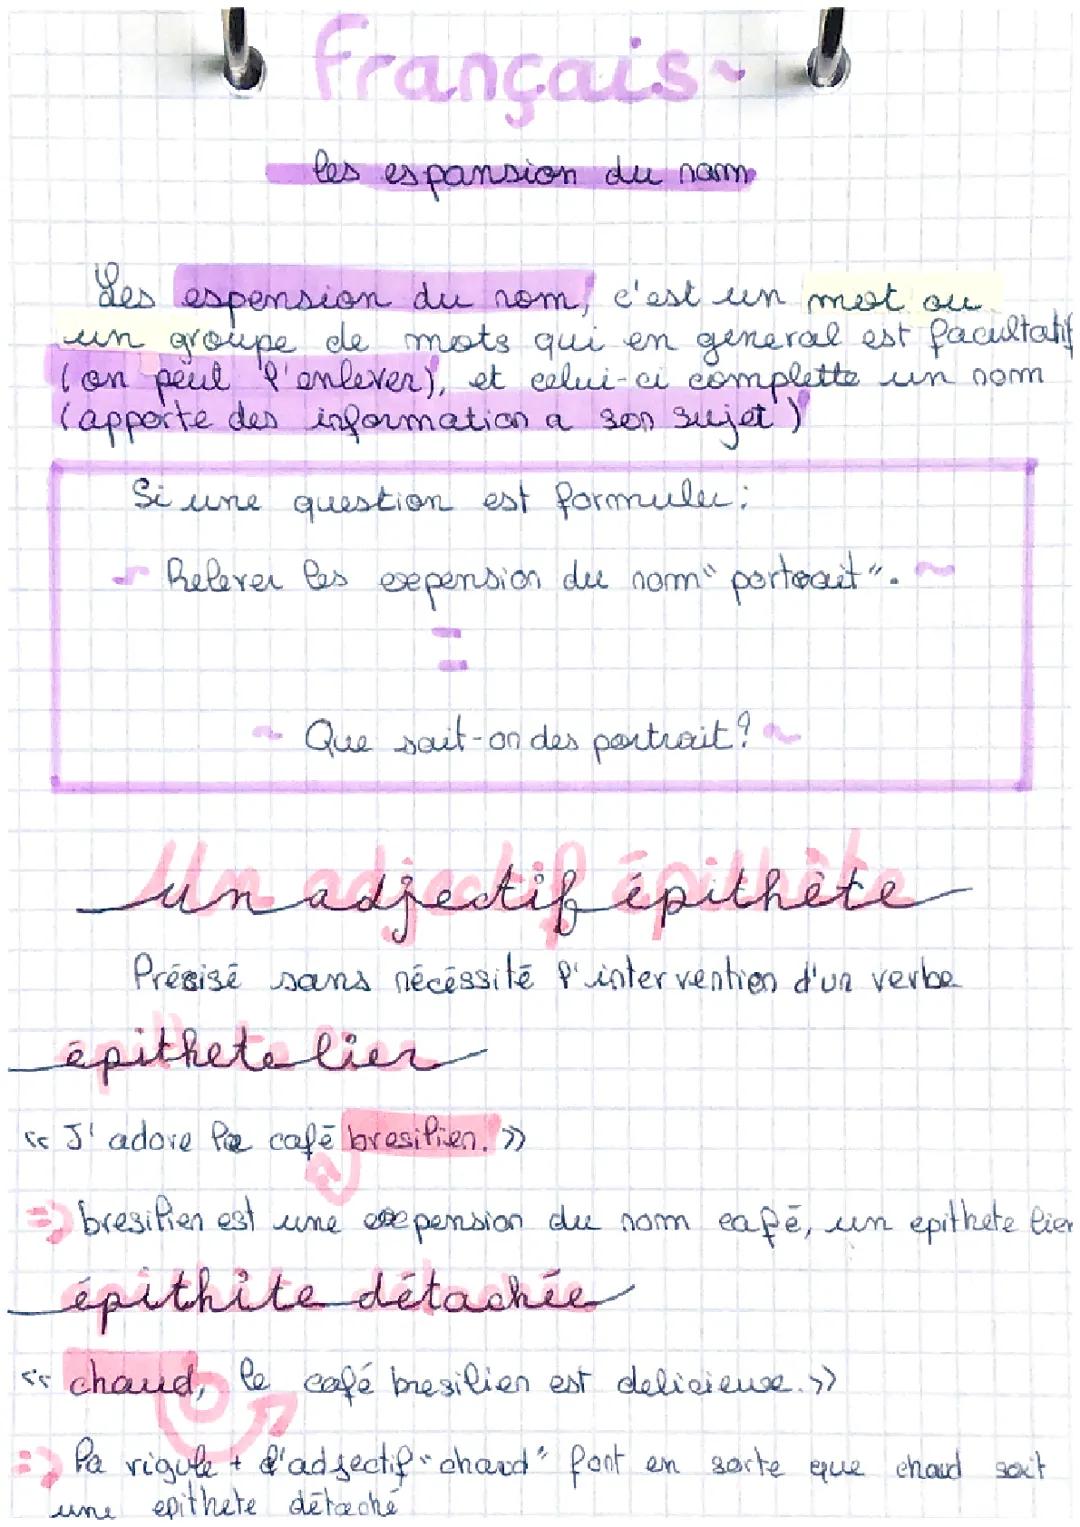 français~
les espansion du nom
Les espension du nom, c'est un mot ou
un groupe de mots qui en general est facultatif
(on peut l'enlever), et celui-ci complette un nom
(apporte des information a son sujet)
Si une question est formuler:
~ Relever les expension du nom "portrait". ~
=
~ Que sait-on des portrait? ~
Un adjectif épithète
Précisé sans nécéssité l'intervention d'un verbe
épithete lier
« J'adore le café bresilien. »
=> bresilien est une expension du nom café, un epithete lier
épithète détachée
« chaud, le café bresilien est delicieuse. »
=> la vigule + l'adjectif "chaud" font en sorte que chaud soit
une epithete détaché